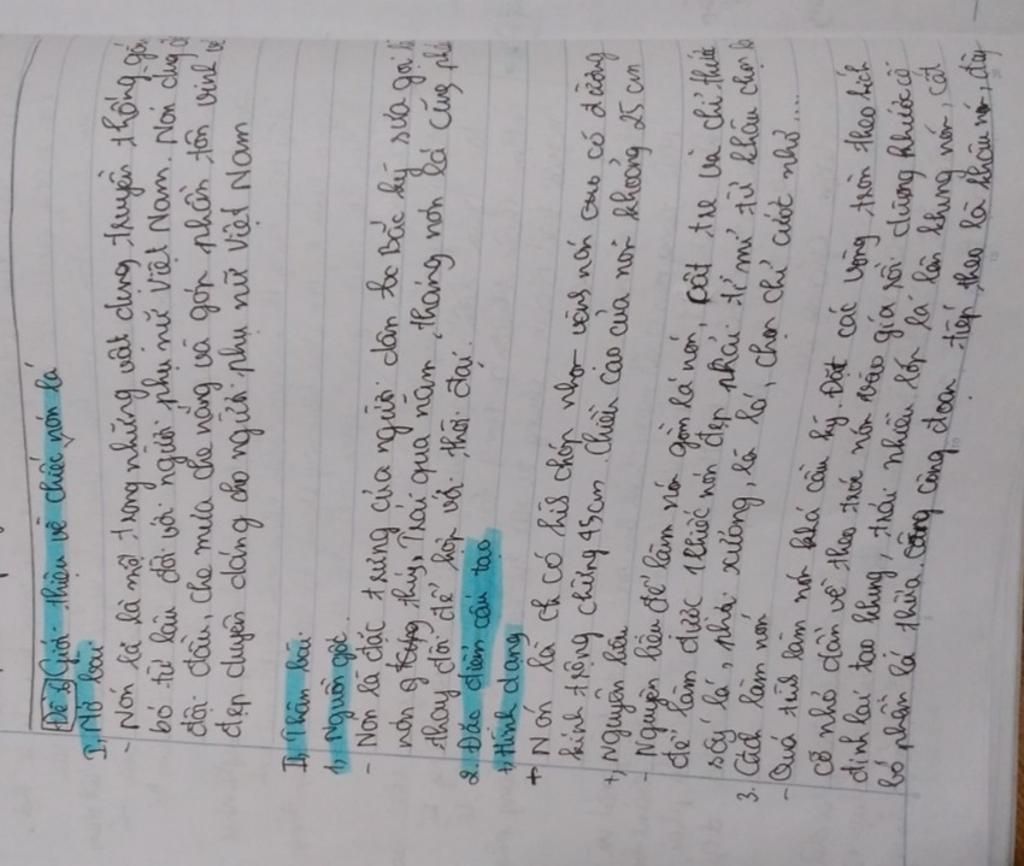 Đề 2 Giới thiệu về chiếc nón lá
I, Mở bài
- Nón lá là một trong những vật dụng truyền thống gắn
bó từ lâu đối với người phụ nữ Việt Nam. Nón dùng để
đội đầu, che mưa che nắng và góp phần tôn vinh vẻ
đẹp duyên dáng cho người phụ nữ Việt Nam
II, Thân bài.
1, Nguồn gốc.
- Nón là đặc trưng của người dân Bắc kỳ xưa gọi là
nón thúy, Trải qua năm tháng nón lá cũng phải
thay đổi để hợp với thời đại.
2. Đặc điểm cấu tạo
+, Hình dạng
+ Nón lá có hình chóp vành nón có đường
kính rộng chừng 45cm. Chiều cao của nón khoảng 25 cm
+, Nguyên liệu
- Nguyên liệu để làm nón gồm lá nón, cật tre và chỉ thức
để làm được 1 chiếc nón đẹp phải tỉ mỉ từ khâu chọn lá
sấy lá, phơi sương, là lá, chọn chỉ cước nhỏ....
3. Cách làm nón
- Quá trình làm nón khá cầu kỳ. Đặt các vòng tròn theo kích
cỡ nhỏ dần về theo trái nón vào giá rồi dùng khước cố
định lại tạo khung, trải nhiều lớp lá lên khung nón, cắt
bỏ phần lá thừa. Công công đoạn tiếp theo là khâu nón, đây